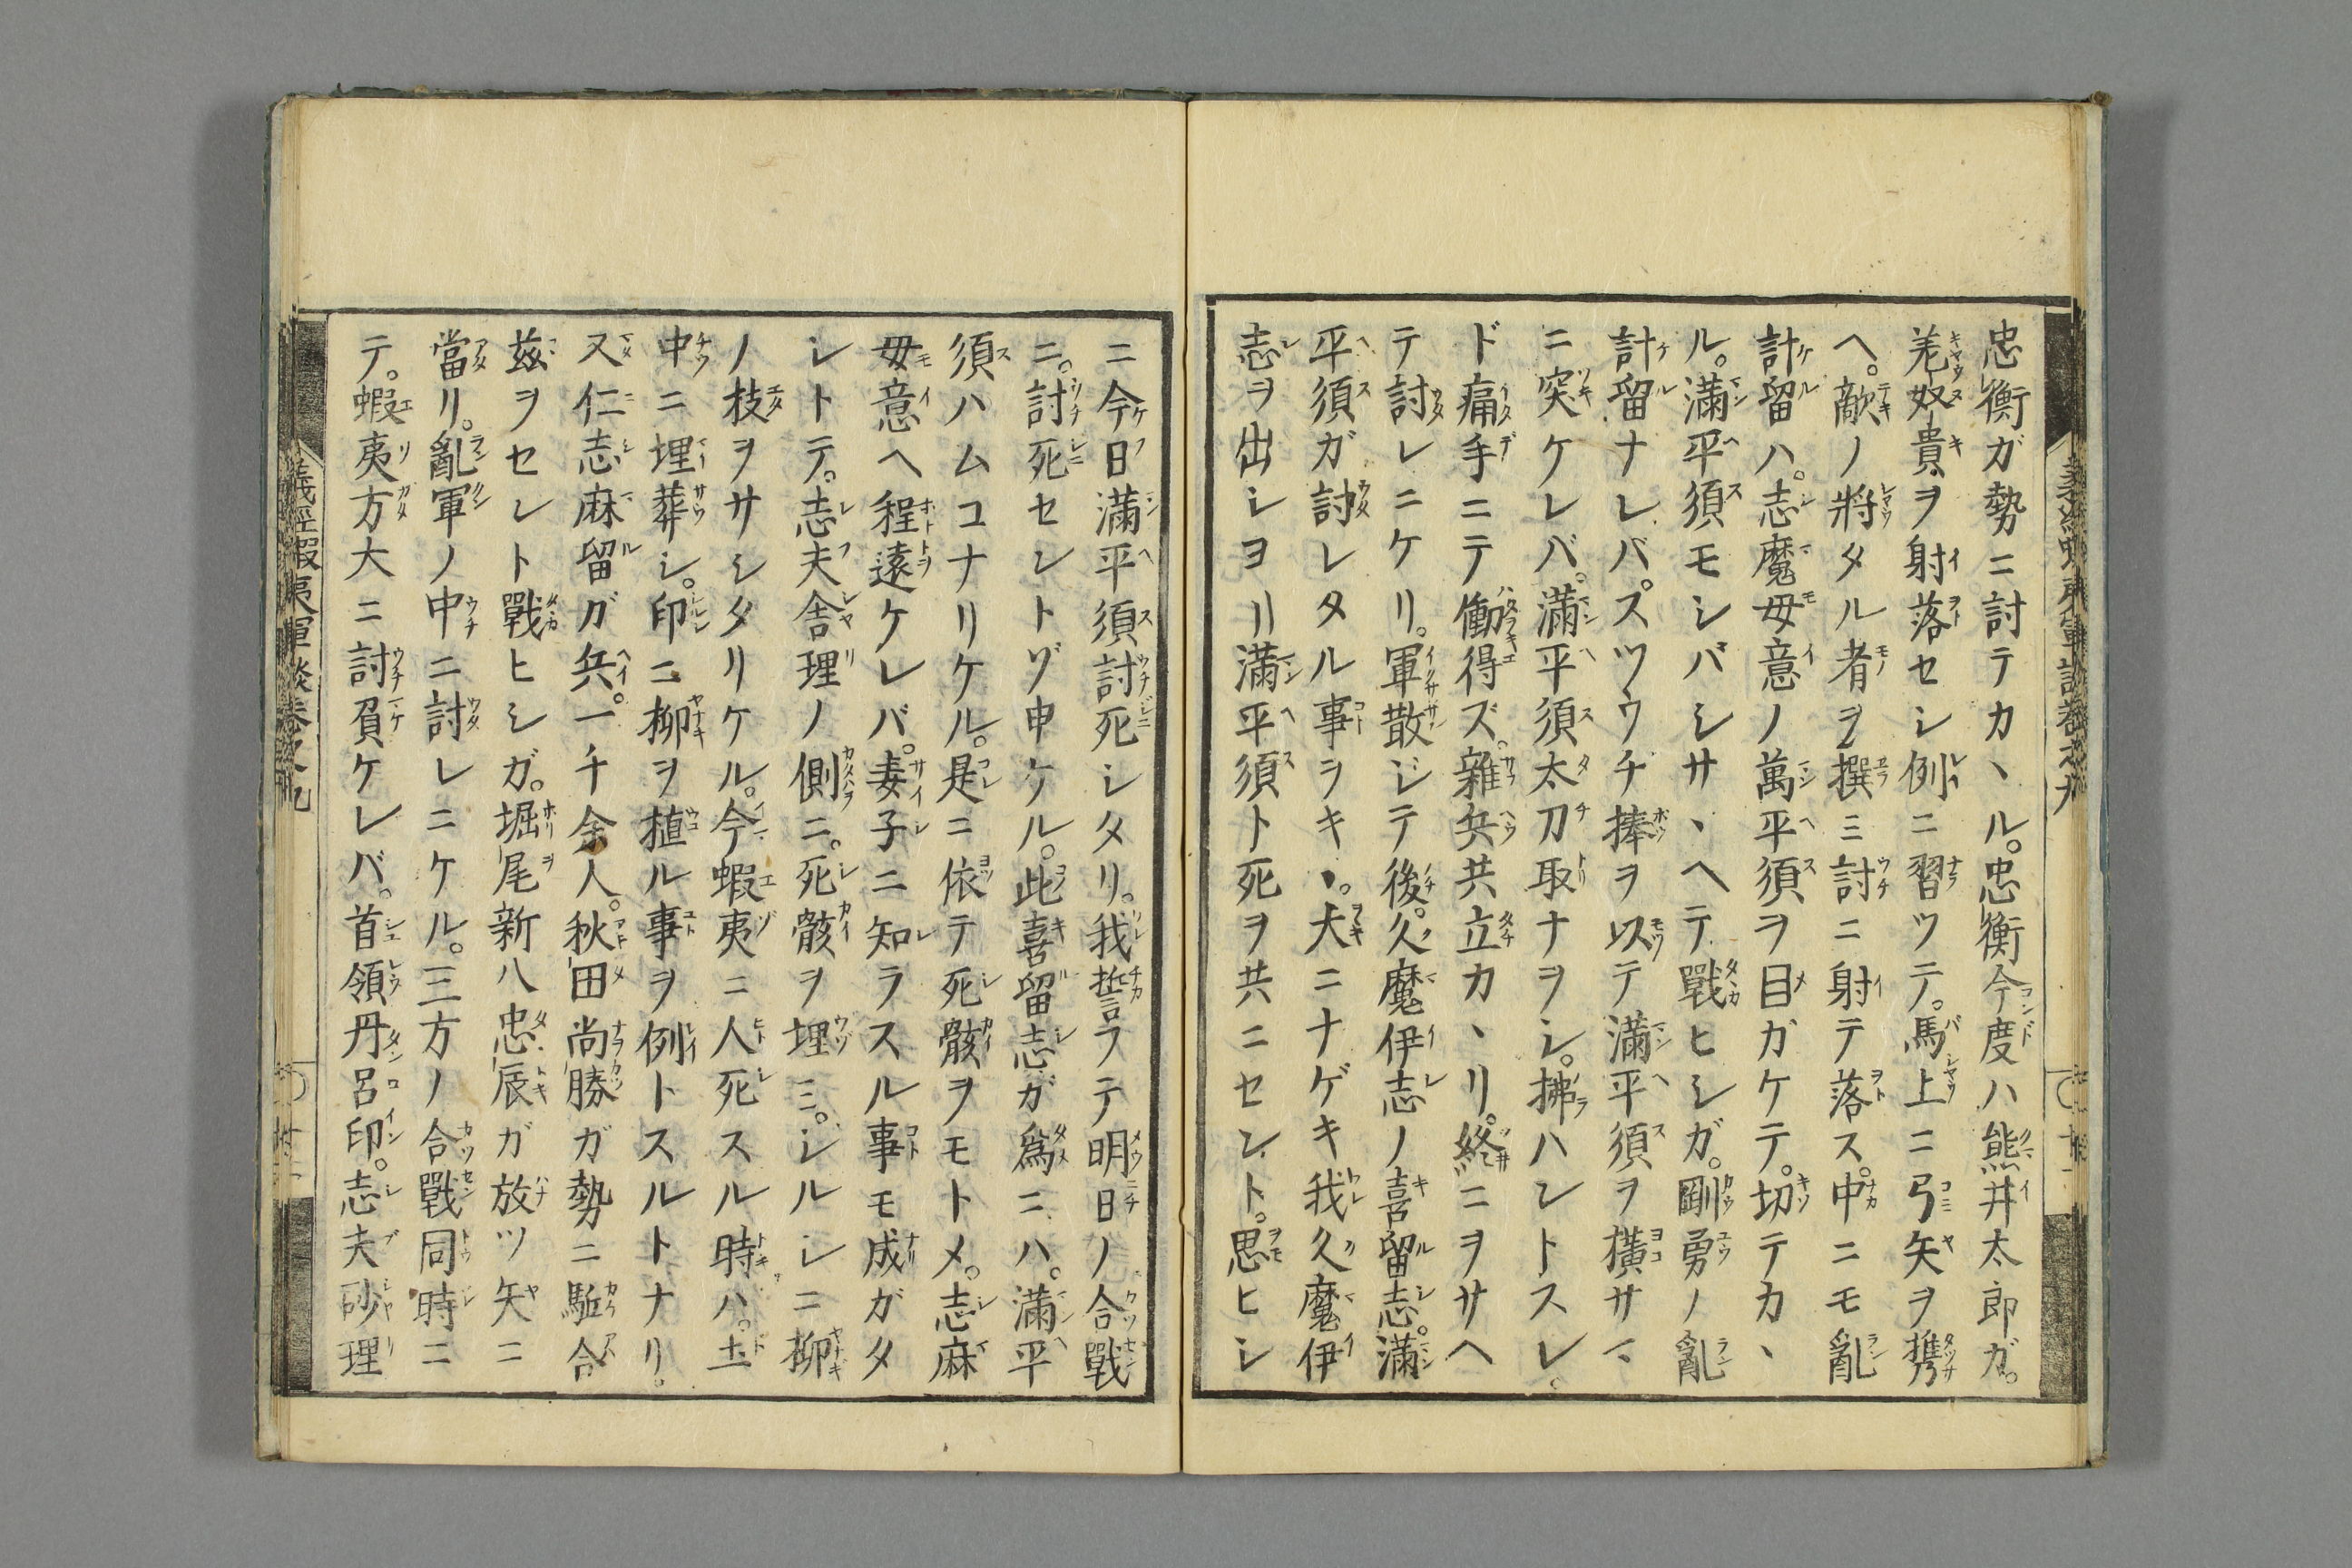 忠衡ガ勢ニ討テカヽル。忠衡今度ハ熊井太郎ガ。
羌奴貴ヲ射落セシ例ニ習ツテ。馬上ニ弓矢ヲ携
ヘ。敵ノ將タル者ヲ撰ミ討ニ射テ落ス。中ニモ亂
計留ハ。志魔毋意ノ萬平須ヲ目ガケテ。切テカヽ
ル。滿平須モシバシサヽヘテ戰ヒシガ。剛勇ノ亂
計留ナレバ。スツウチ捧ヲ以テ滿平須ヲ橫サマ
ニ突ケレバ。滿平須太刀取ナヲシ。拂ハントスレ。
ド痛手ニテ働得ズ。雜兵共立カヽリ。終ニヲサヘ
テ討レニケリ。軍散ジテ後。久魔伊志ノ喜留志。滿
平須ガ討レタル事ヲキヽ。大ニナゲキ我久魔伊
志ヲ出シヨリ滿平須ト死ヲ共ニセント。思ヒシ
ニ今日滿平須討死シタリ。我誓ラテ明日ノ合戰
ニ。討死セントゾ申ケル。此喜留志ガ爲ニハ。滿平
須ハムコナリケル。是ニ依テ死骸ヲモトメ。志麻
毋意ヘ程遠ケレバ。妻子ニ知ラスル事モ成ガタ
シトテ。志夫舍理ノ側ニ。死骸ヲ埋ミ。シルシニ柳
ノ枝ヲサシタリケル。今蝦夷ニ人死スル時ハ。土
中ニ埋葬シ。印ニ柳ヲ植ル事ヲ例トスルトナリ。
又仁志麻留ガ兵。一千余人。秋田尚勝ガ勢ニ駈合
茲ヲセレト戰ヒシガ。堀尾新八忠辰ガ放ツ矢ニ
當リ。亂軍ノ中ニ討レニケル。三方ノ合戰同時ニ
テ。蝦夷方大ニ討負ケレバ。首領丹呂印。志夫砂理
義經蝦夷軍談卷之九